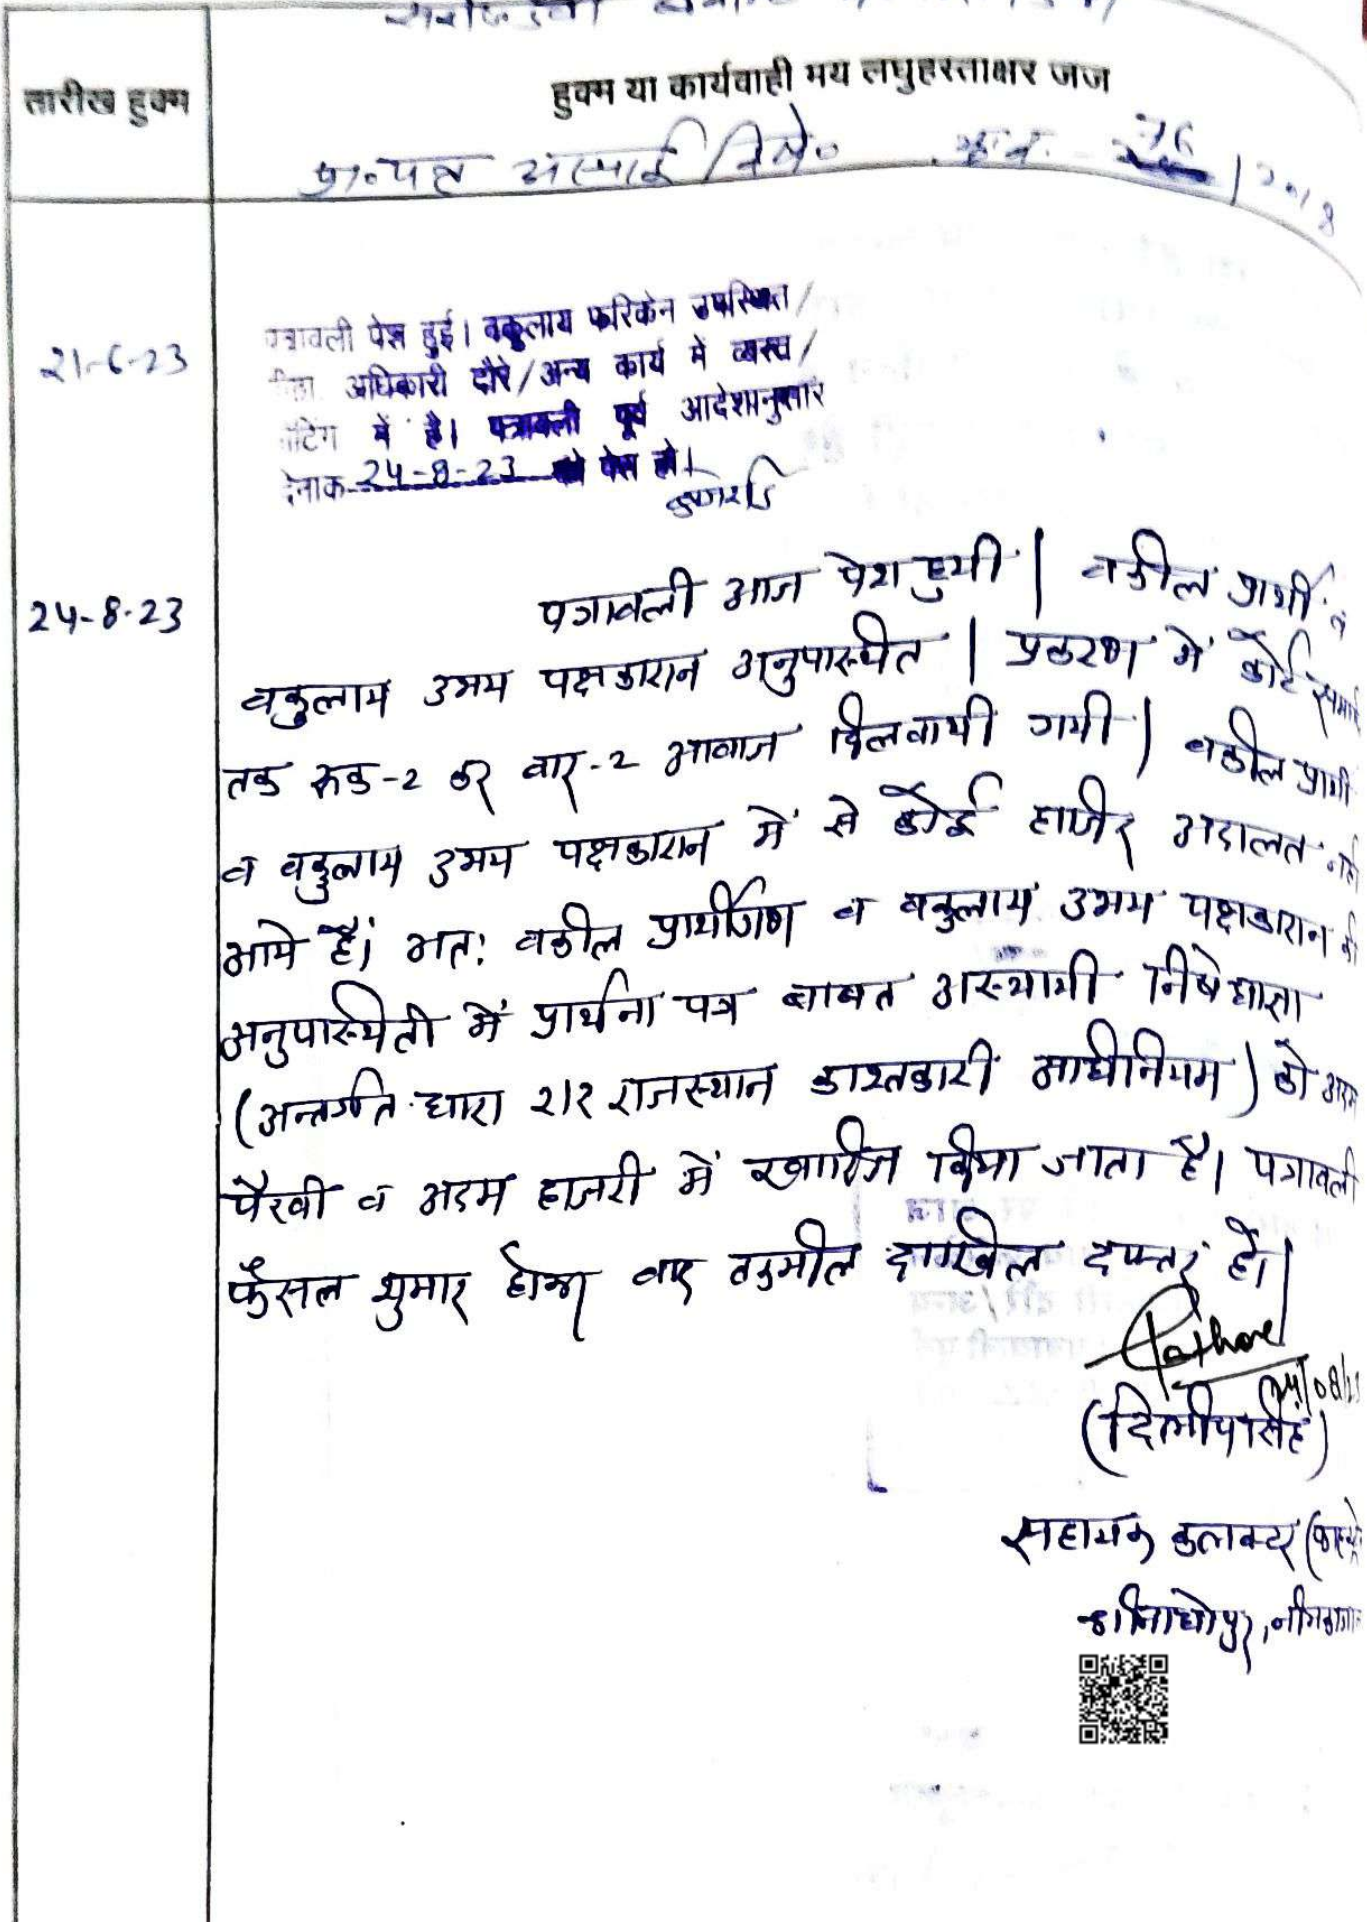 तारीख हुक्म
हुक्म या कार्यवाही मय लघुहस्ताक्षर जज
प्रा०पत्र अस्थाई निषे० 76 / 2018
21-6-23
पत्रावली पेश हुई। वकुलाय फरिकेन उपस्थित/
अधिकारी दौरे/अन्य कार्य में व्यस्त/
में है। पत्रावली पूर्व आदेशानुसार
24-8-23 को पेश हो।
24-8-23
पत्रावली आज पेश हुयी | वकील प्रार्थी व
वकुलाय उभय पक्षकारान अनुपास्थीत | प्रकरण में कोर्ट समय
तक रूक-2 कर बार-2 आवाज दिलवायी गयी | वकील प्रार्थी
व वकुलाय उभय पक्षकारान में से कोई हाजिर अदालत नहीं
आये हैं। अत: वकील प्रार्थीगण व वकुलाय उभय पक्षकारान की
अनुपास्थिती में प्रार्थना पत्र बाबत अस्थायी निषेधाज्ञा
(अन्तर्गत धारा 212 राजस्थान काश्तकारी अधीनियम) को अदम
पैरवी व अदम हाजरी में खारिज किया जाता है। पत्रावली
फैसल शुमार होकर बाद तकमील दाखिल दफ्तर हो।
24/08/23
(दिलीपसिंह)
सहायक कलक्टर
श्रीमाधोपुर, नीमकाथाना